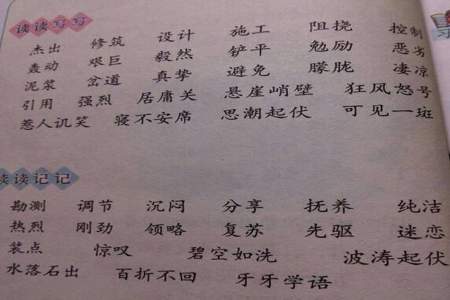 读读写写
杰出 修筑 设计 施工 阻挠 控制
轰动 艰巨 毅然 铲平 勉励 恶劣
泥浆 岔道 真挚 避免 朦胧 凄凉
引用 强烈 居庸关 悬崖峭壁 狂风怒号
惹人讥笑 寝不安席 思潮起伏 可见一斑
读读记记
勘测 调节 沉闷 分享 抚养 纯洁
热烈 刚劲 领略 复苏 先驱 迷恋
装点 惊叹 碧空如洗 波涛起伏
水落石出 百折不回 牙牙学语